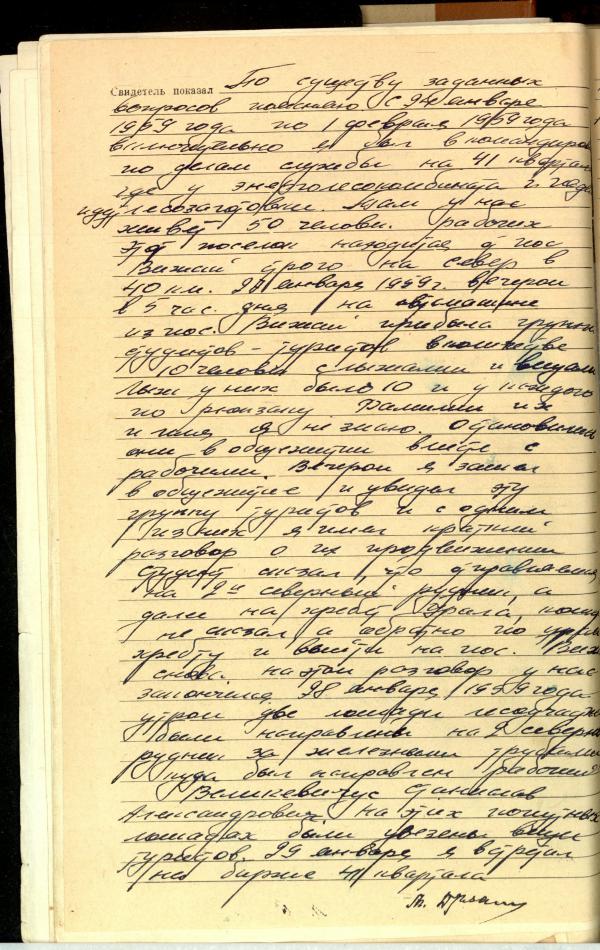 Свидетель показал По существу заданных
вопросов поясняю с 24 января
1959 года по 1 февраля 1959 года
включительно я был в командиров
по делам службы на 41 квартал
где у энерголесокомбината
идут лесозаготовки. Там у нас
живет 50 челови. рабочих
этот поселок находится от пос
Вижай строго на север в
40 км. 27 января 1959 г. вечером
в 5 час. дня на автомашине
из пос. Вижай прибыла группа
студентов - туристов в количестве
10 человек с лыжами и вещами
лыж у них было 10 и у каждого
по рюкзаку. Фамилии их
и имя я не знаю. Остановились
они в общежитии вместе с
рабочими. Вечером я зашел
в общежитие и увидел эту
группу туристов и с одним
из них я имел краткий
разговор о их продвижении
студент сказал, что отправляемся
на 2й северный рудник, а
далее на хребет Урала,
не сказал а обратно по
хребту и выйти на пос. Виж
снова. на этом разговор у нас
закончился. 28 января 1959 года
утром две лошади лесоучастка
были направлены на 2 северн
рудник за железными трубами
куда был направлен рабочий
Великевичус Станислав
Александрович на этих попутных
лошадях были увезены вещи
туристов. 29 января я встретил
на бирже 41 квартала